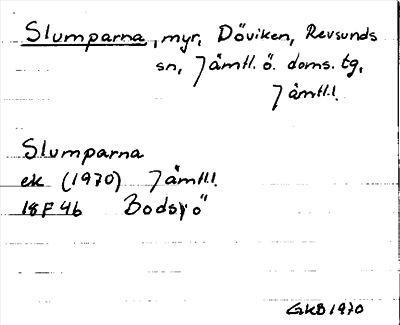 Slumparna, myr, Döviken, Revsunds
sn, Jämtl. ö. doms. tg,
Jämtl.
Slumparna
ek (1970) Jämtl.
18F 4b Bodsjö
GKB 1970